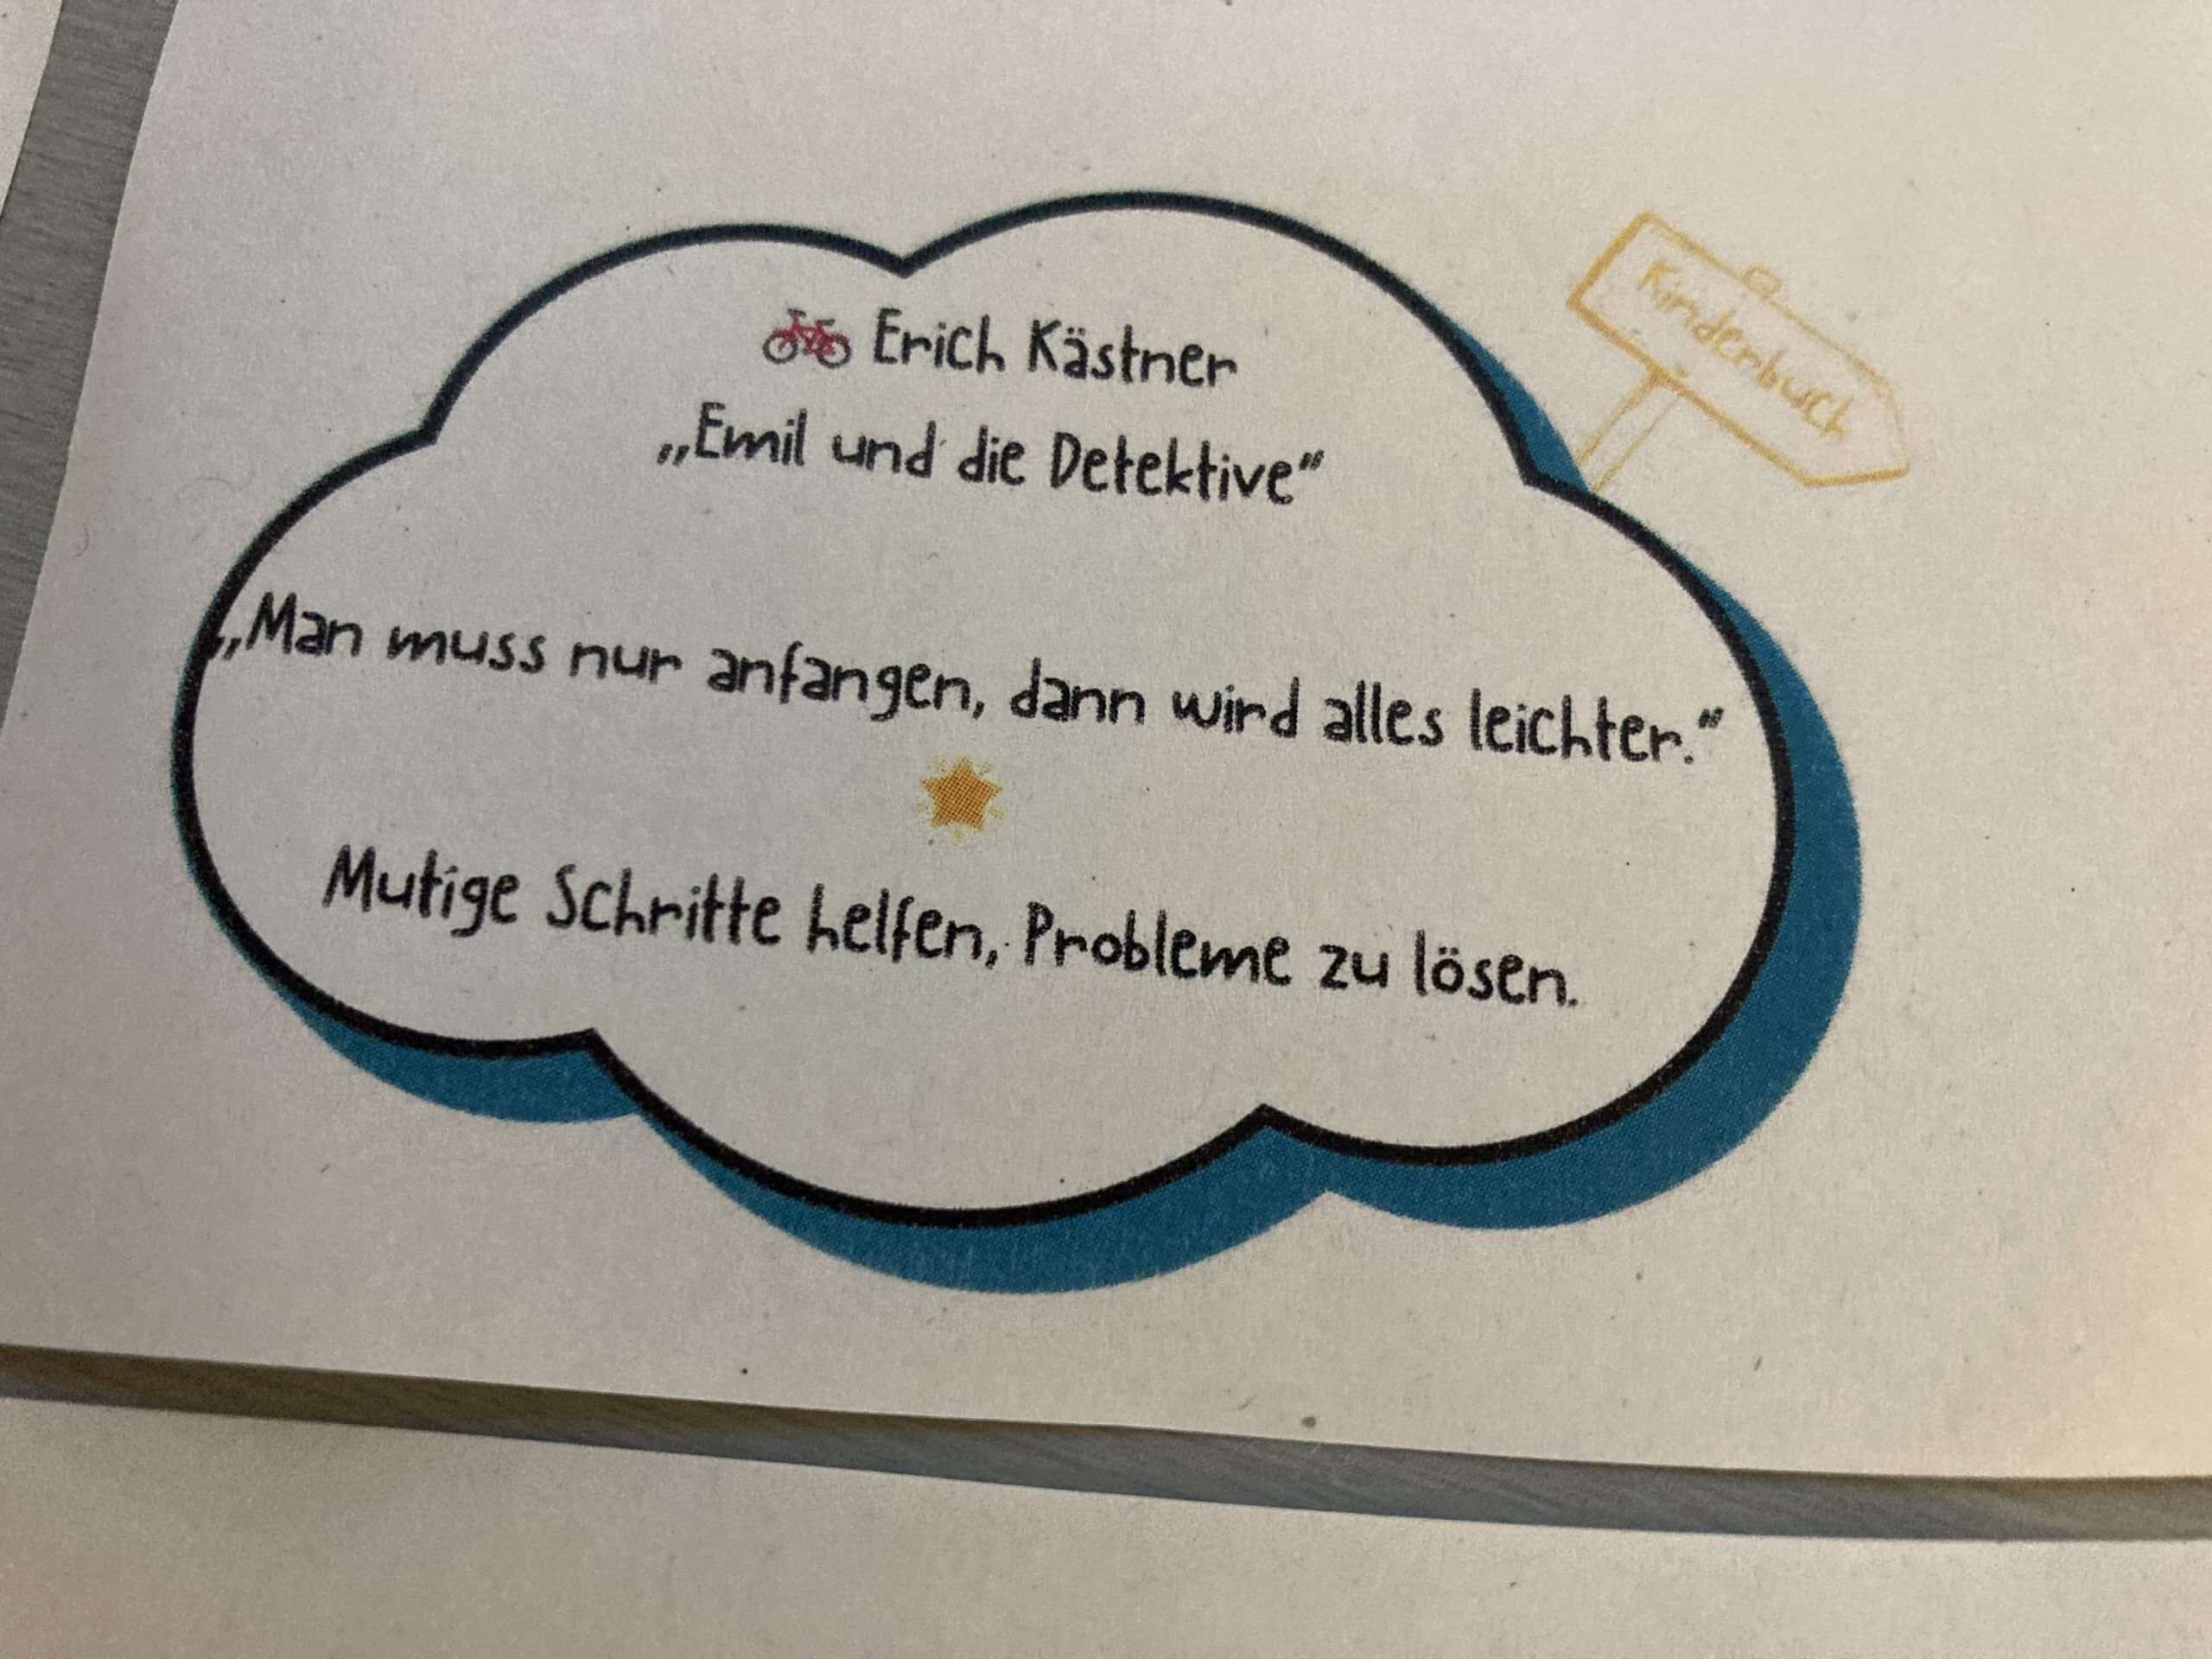 Erich Kästner
„Emil und die Detektive“
Kinderbuch
„Man muss nur anfangen, dann wird alles leichter.“
Mutige Schritte helfen, Probleme zu lösen.